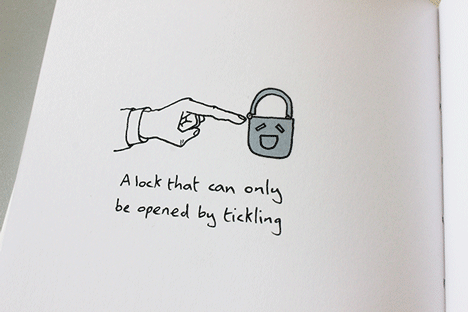 A lock that can only
be opened by tickling